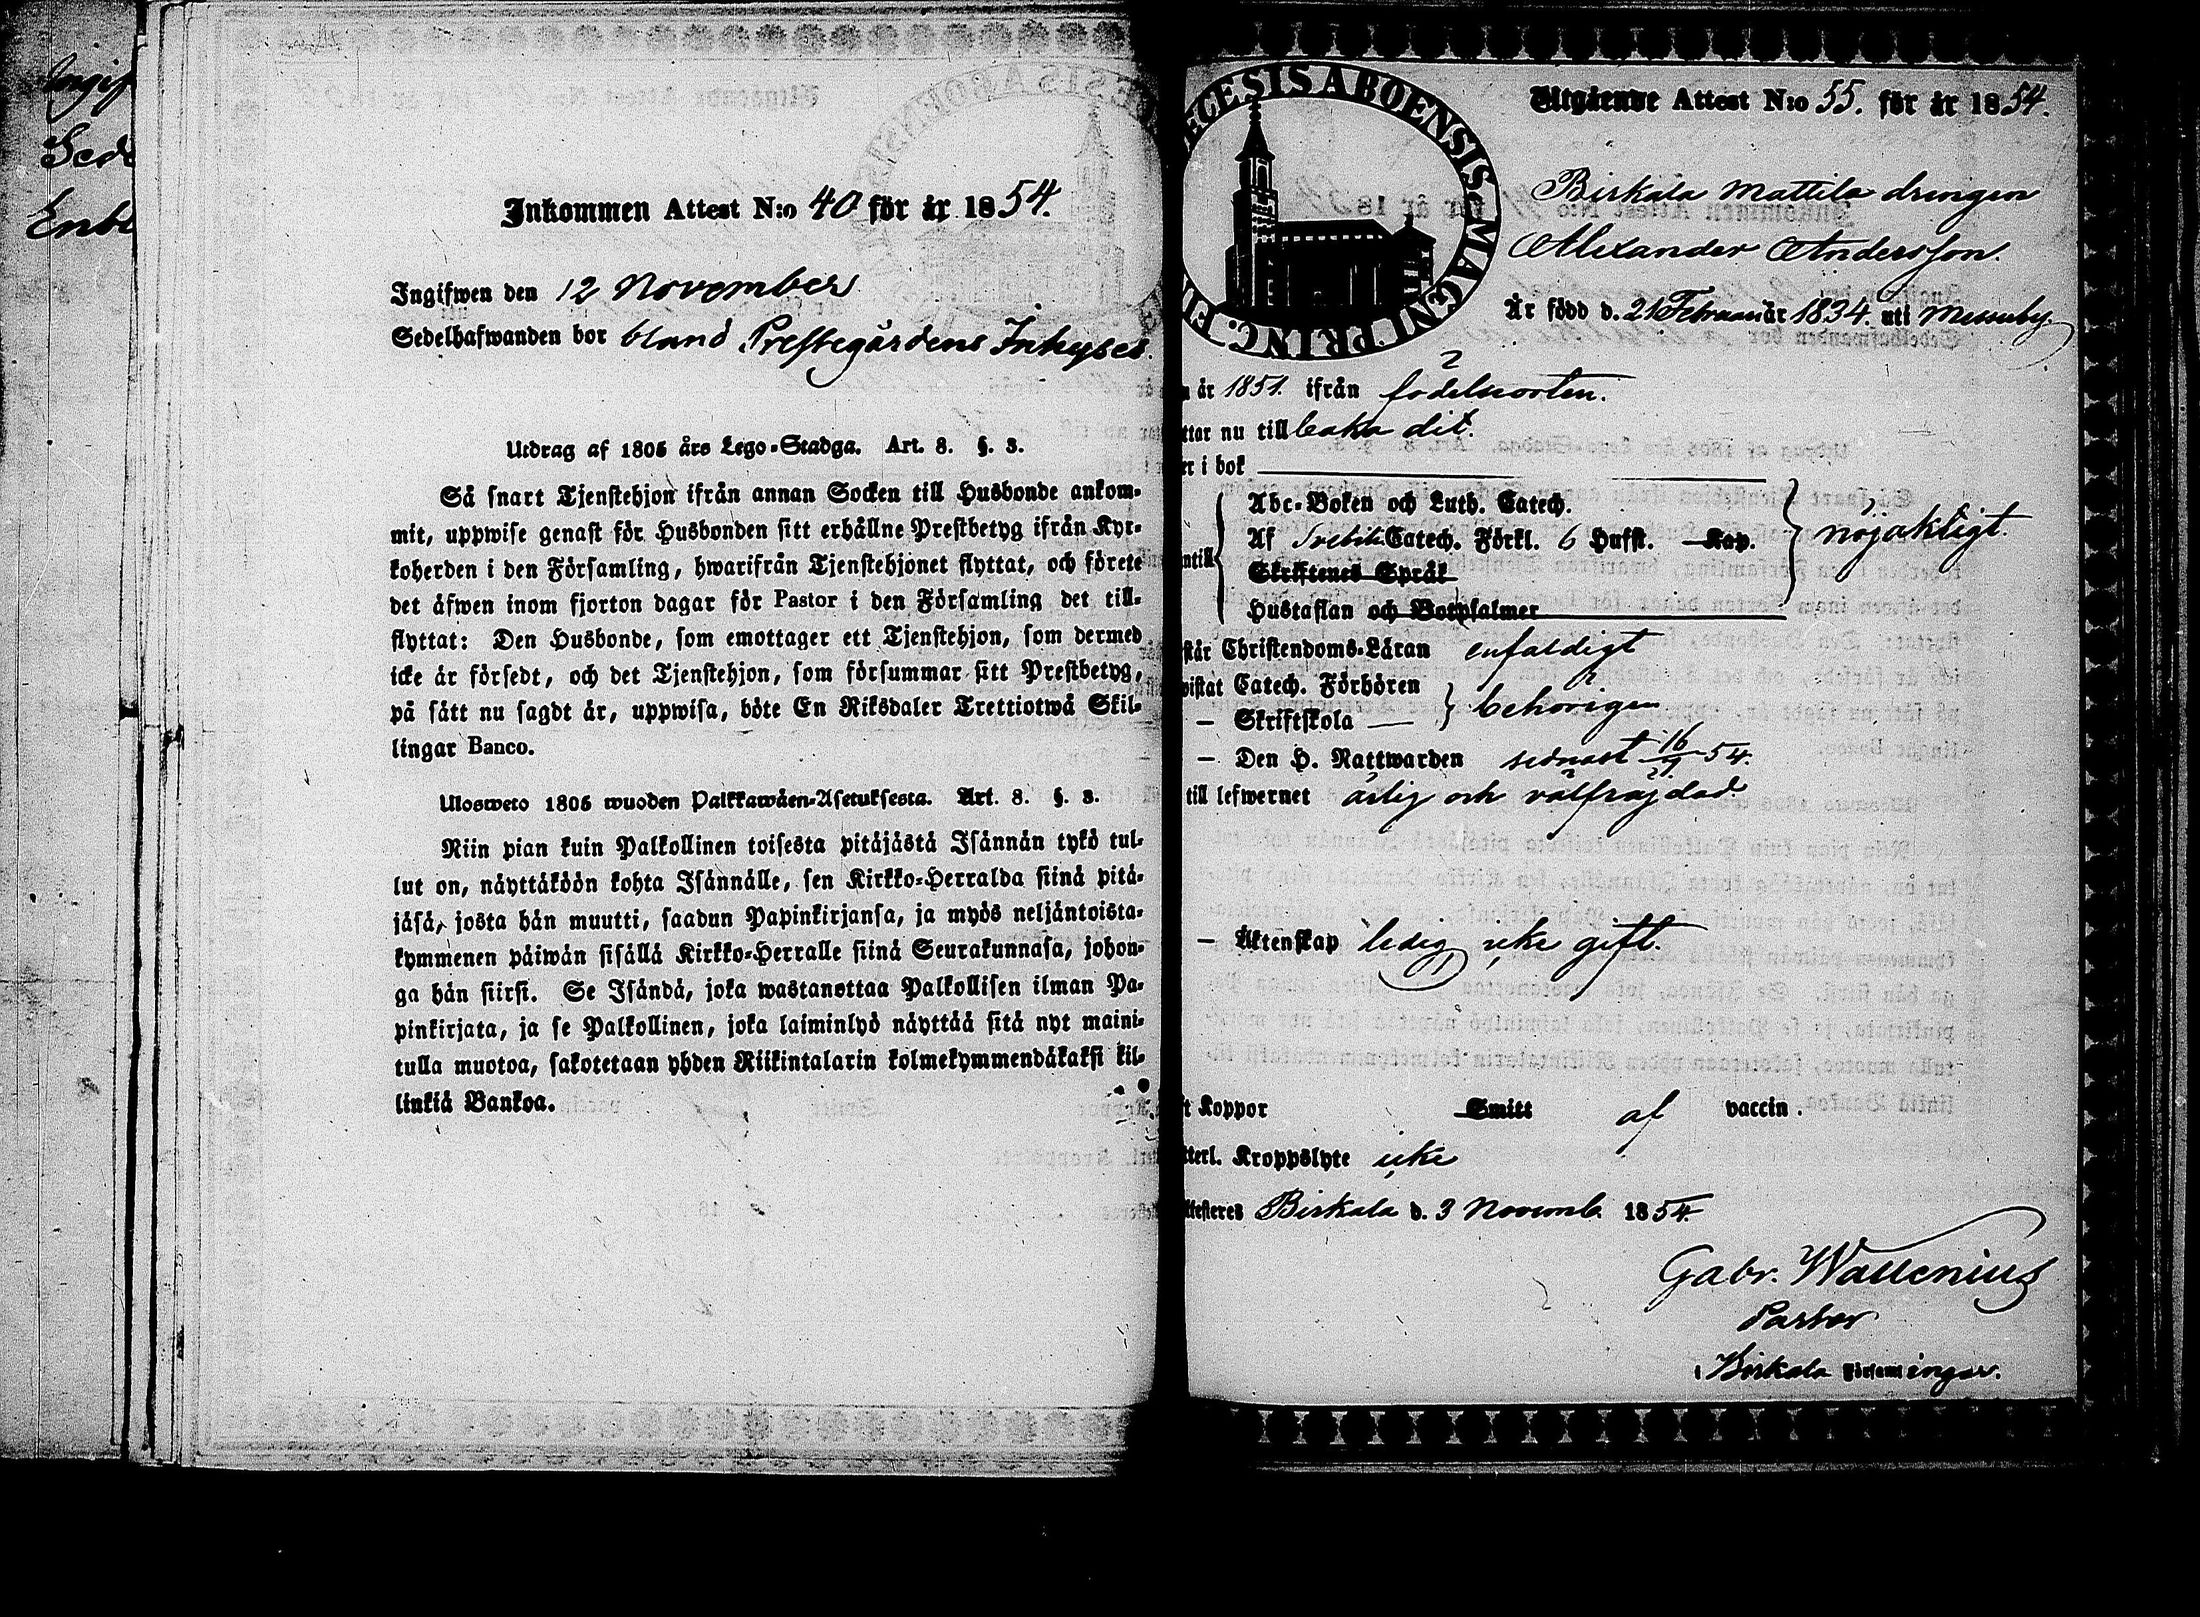 Ingif
Sede
Enbl
Inkommen Attest N:o 40 för år 1854.
Ingifwen den 12 November
Sedelhafwanden bor bland Prestegårdens Inhyses.
Utdrag af 1805 års Lego-Stadga. Art. 8. §. 3.
Så snart Tjenstehjon ifrån annan Socken till Husbonde ankom-
mit, uppwise genast för Husbonden sitt erhållne Prestbetyg ifrån Kyr-
koherden i den Församling, hwarifrån Tjenstehjonet flyttat, och förete
det äfwen inom fjorton dagar för Pastor i den Församling det till-
flyttat: Den Husbonde, som emottager ett Tjenstehjon, som dermed
icke är försedt, och det Tjenstehjon, som försummar sitt Prestbetyg,
på sätt nu sagdt är, uppwisa, böte En Riksdaler Trettiotwå Skil-
lingar Banco.
Ulosweto 1805 wuoden Palkkawäen-Asetuksesta. Art. 8. §. 3.
Niin pian kuin Palkollinen toisesta pitäjästä Isännän tykö tul-
lut on, näyttäköön kohta Isännälle, sen Kirkko-Herralda siinä pitä-
jäsä, josta hän muutti, saadun Papinkirjansa, ja myös neljäntoista-
kymmenen päiwän sisällä Kirkko-Herralle siinä Seurakunnasa, johon-
ga hän siirsi. Se Isändä, joka wastanottaa Palkollisen ilman Pa-
pinkirjata, ja se Palkollinen, joka laiminlyö näyttää sitä nyt maini-
tulla muotoa, sakotetaan yhden Riikintalarin kolmekymmendäkaksi kil-
linkiä Bankoa.
ECESIS ABOENSIS. MAGNI PRINC. FI
Utgående Attest N:o 55. för år 1854.
Birkala Mattila drengen
Alexander Andersson.
Är född d. 21 Februari år 1834. uti Messuby.
n år 1851. ifrån födelseorten.
ttar nu tillbaka dit.
er i bok
ntill
Abc-Boken och Luth. Catech.
Af Svebil. Catech. Förkl. 6 Hufst. Kap.
Skriftenes Språk
Hustaflan och Botpsalmer
nöjaktigt.
står Christendoms-Läran enfaldigt
vistat Catech. Förhören
— Skriftskola — behörigen
— Den H. Nattwarden sednast 16/9 54.
till lefwernet ärlig och välfrajdad
— Äktenskap ledig, icke gift.
ft Koppor Smitt af vaccin.
tterl. Kroppslyte icke
ttesteres Birkala d. 3 Novemb. 1854.
Gabr. Wallenius
Pastor
i Birkala Församlingar.